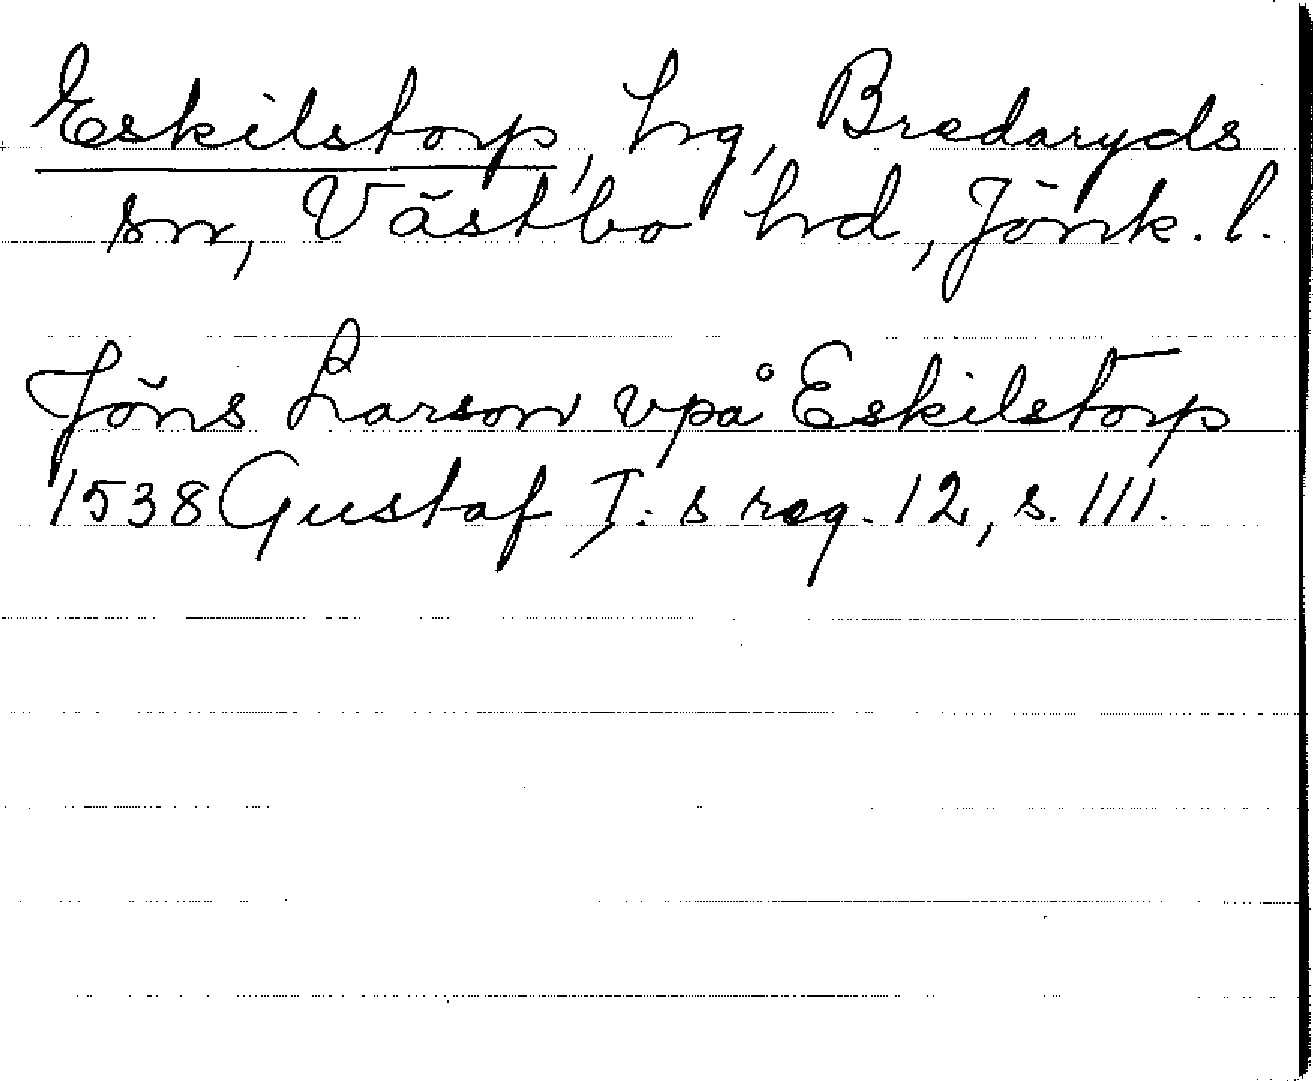 Eskilstorp, hg, Bredaryds
sn, Västbo hd, Jönk. l.
Jöns Larson vpå Eskilstorp
1538 Gustaf I: s reg. 12, s. 111.